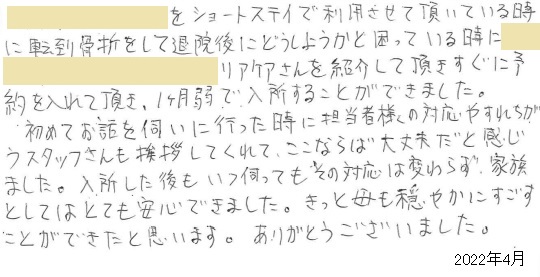 をショートステイで利用させて頂いている時
に転到骨折をして退院後にどうしようかと困っている時に
リアケアさんを紹介して頂きすぐに予
約を入れて頂き、1ヶ月弱で入所することができました。
初めてお話を伺いに行った時に担当者様の対応やすれちが
うスタッフさんも挨拶してくれて、ここならば大丈夫だと感じ
ました。入所した後もいつ伺ってもその対応は変わらず、家族
としてはとても安心できました。きっと母も穏やかにすごす
ことができたと思います。ありがとうございました。
2022年4月